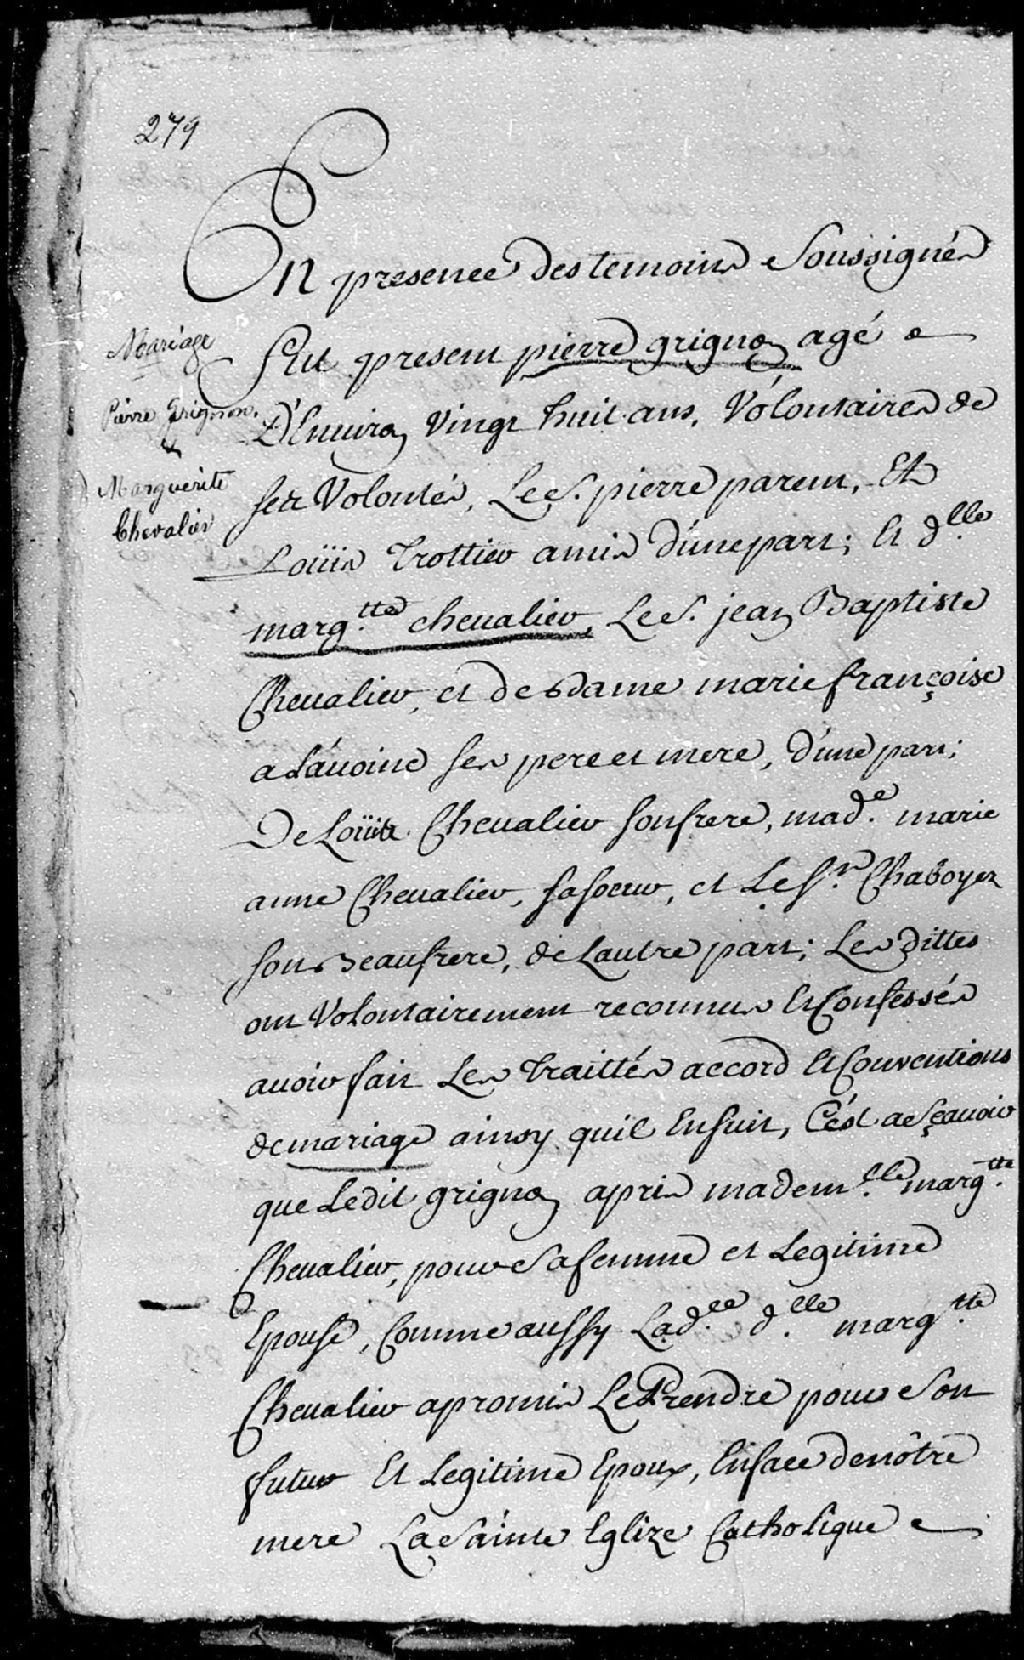 279
En presence des temoins Soussignés
Mariage
Pierre Grignon.
&
Marguerite
Chevalier
fut present pierre grignon agé
D'Enuiron Vingt huit ans, Volontaires de
ses Volontés, Le S. pierre parent, Et
Loüis Trottier amis d'une part; Et d.lle
marg.tte cheualier, Le S. jean Baptiste
Cheualier, et de dame marie françoise
a Lauoine ses pere et mere, d'une part;
De Loüis Cheualier son frere, mad.e marie
anne Cheualier, sa soeur, et Le S.r Chaboyez
son Beaufrere, de Lautre part; Les dittes
ont Volontairement reconnus Et Confessés
auoir fait Les Traittés accord Et Conventions
de mariage ainsy quil Ensuit, C'est a Sçauoir
que Ledit grignon a pris madem.lle marg.tte
Cheualier, pour Sa femme et Legitime
Epouse, Comme aussy Lad.ee d.lle marg.tte
Cheualier a promis Le Prendre pour Son
futur Et Legitime Epoux, En face de nôtre
mere La Sainte Eglize Catholique